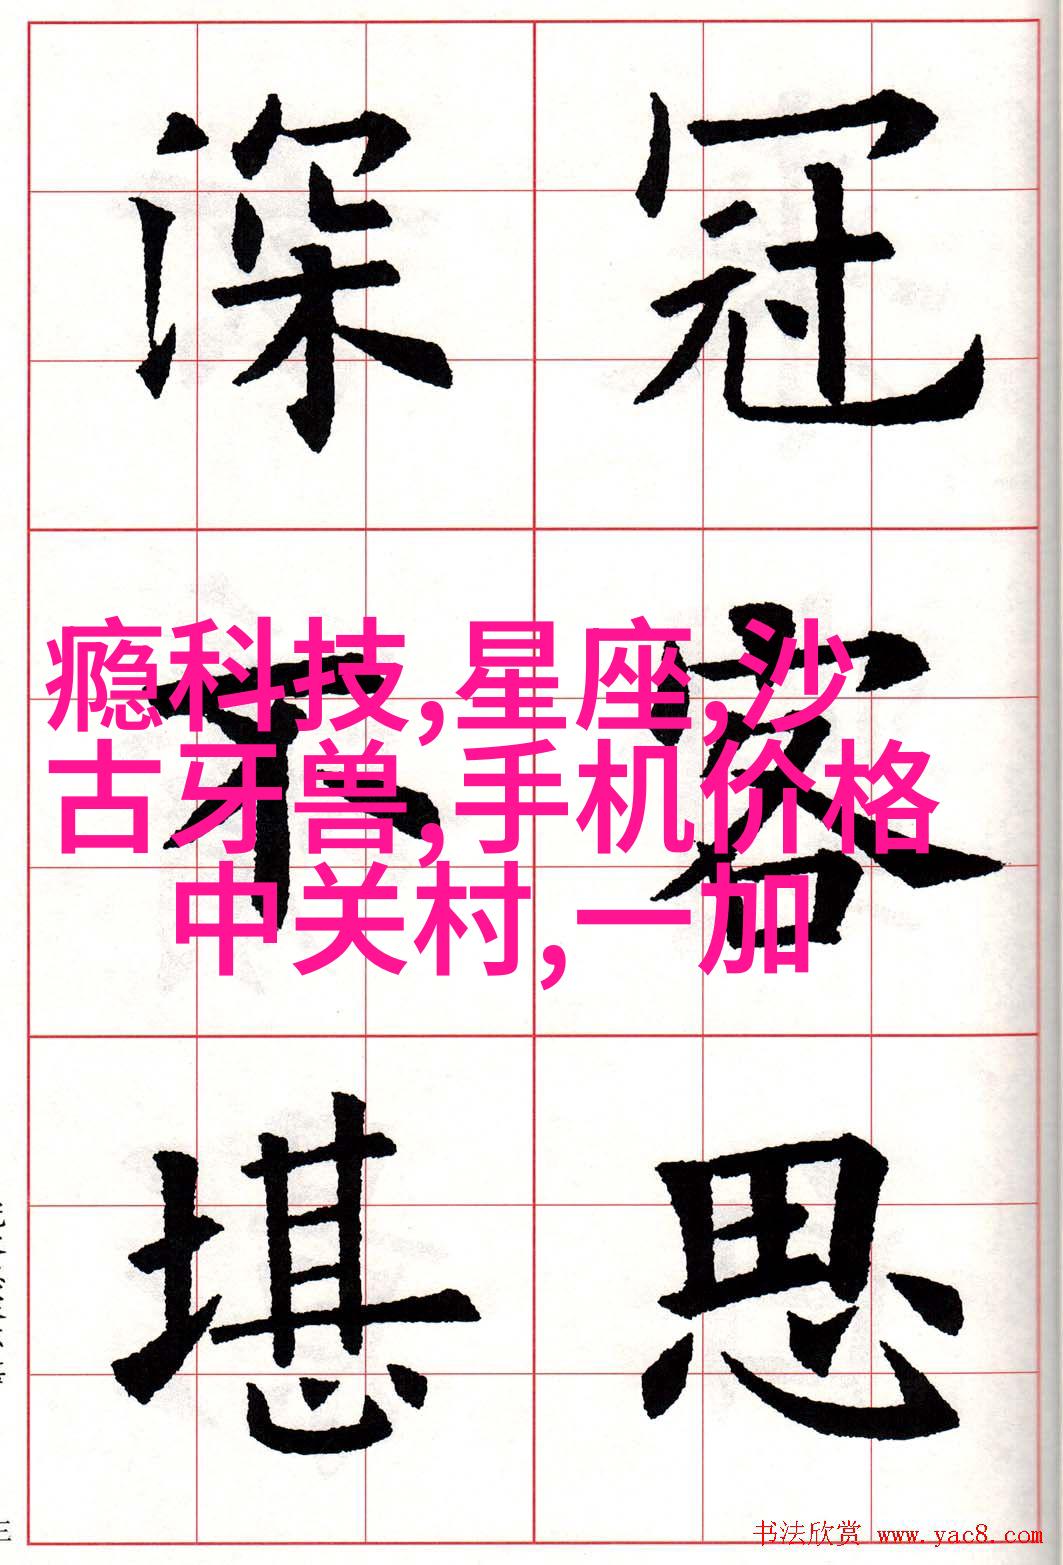 冠 容 思
深 不 堪
瘾科技,星座,沙
古牙兽,手机价格
中关村,一加
书法欣赏 www.yac8.com